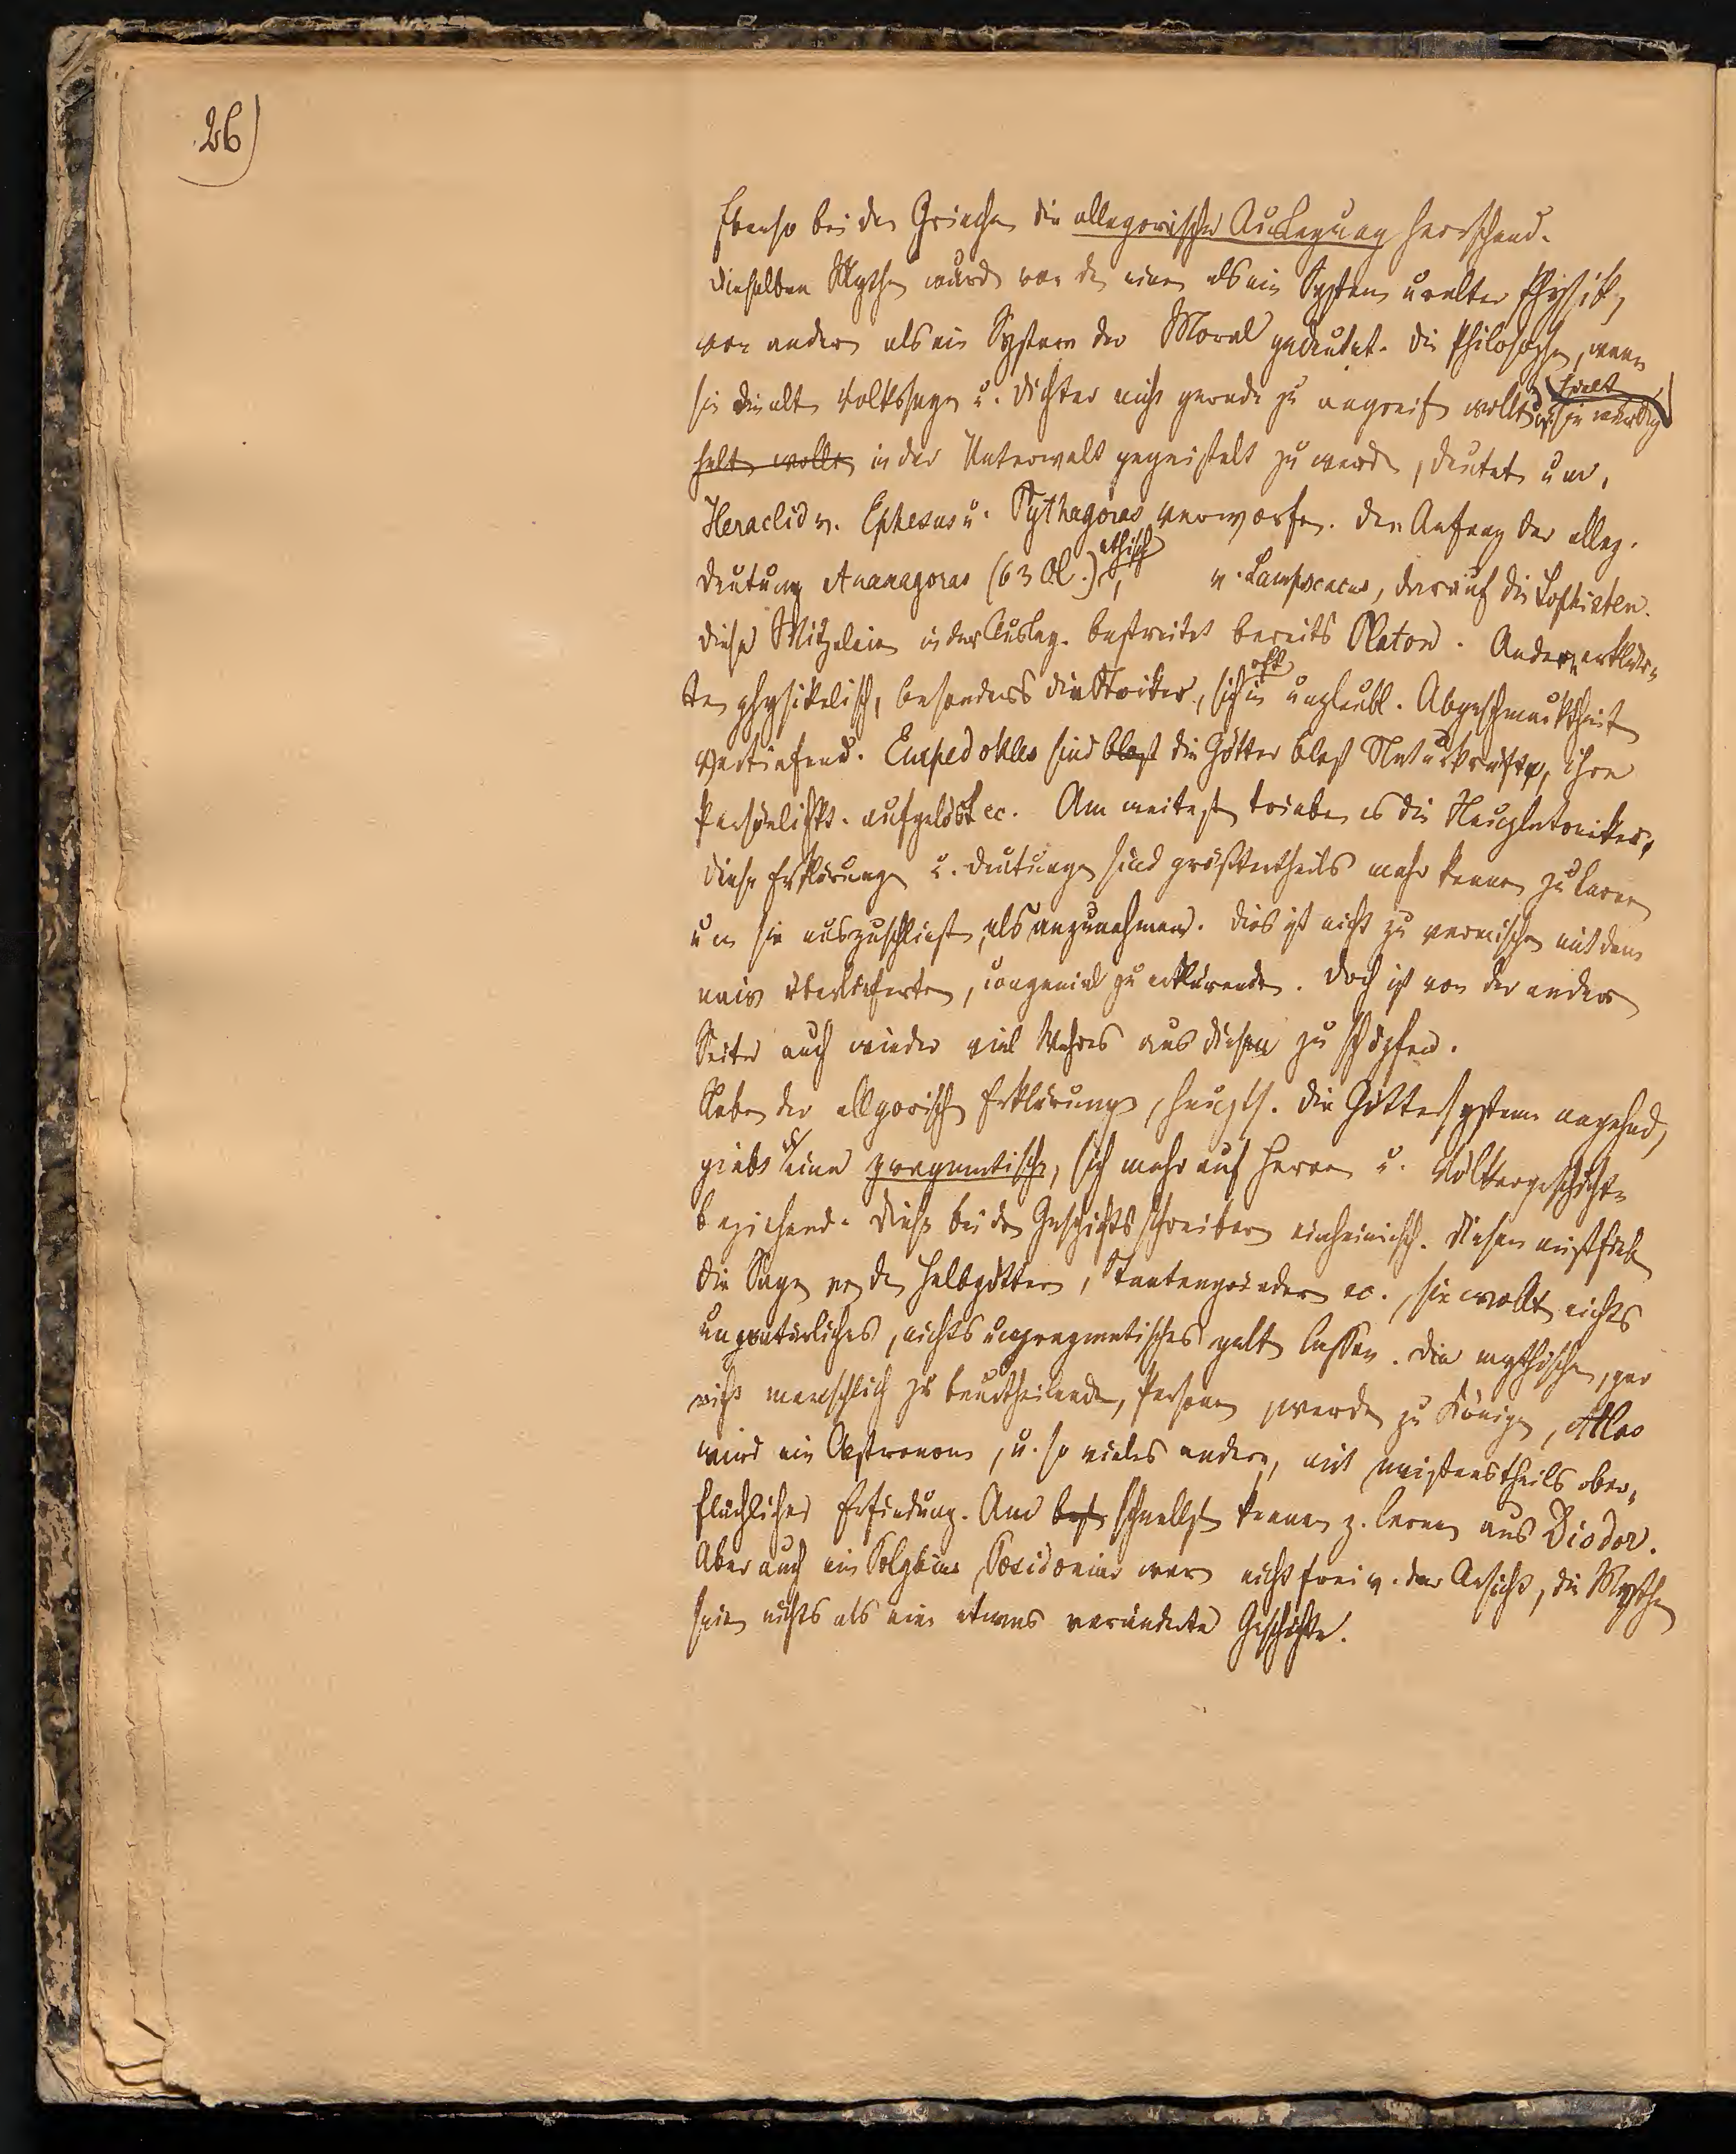 26)
Ebenso bei den Griechen die allegorische Auslegung herrschend.
Dieselben Mythen wurd. von den einen als ein System uralter Physik,
von andern als ein System der Moral gedeutet. Die Philosophen, wenn
sie die alten Volkssagen u. Dichter nicht gerade zu angreifen wollten, sie würdig
halten wollten in der Unterwelt gegeißelt zu werden, deuteten um,
Heraclid v. Ephesus u. Pythagoras verworfen. Den Anfang der alleg.
Deutung Anaxagoras (63 Ol.) ethisch, v. Lampscacus, darauf die Sophisten.
Diese Witzeleien in der Ausleg. bestreitet bereits Platon. Andere erklär-
ten physikalisch, besonders die Stoiker, sich oft in unglaubl. Abgeschmacktheit
vertiefend. Empedokles sind blost die Götter blost Naturkräfte, ihre
Persönlichkt. aufgelöst ec. Am weitesten trieben es die Neuplatoniker,
diese Erklärungen u. Deutungen sind größtentheils mehr kennen zu lernen
um sie auszuschließen, als anzunehmen. Dies ist nicht zu vermischen mit dem
naiv überlieferten, congenial zu erklärenden. Doch ist von der andern
Seite auch wieder viel Wahres aus diesen zu schöpfen.
Neben der allgorischen Erklärung, haupts. die Göttersysteme angehend,
giebts eine pragmatische, sich mehr auf Heroen u. Völkergeschichte
beziehend. Diese bei den Geschichtsschreibern einheimisch. Diesen mißfielen
die Sagen von den Halbgöttern, Staatengründern ec., sie wollten nichts
unnatürliches, nichts unpragmatisches gelten lassen. Die mythischen, gar
nicht menschlich zu beurtheilenden, Personen werden zu Königen, Atlas
wird ein Astronom, u. so vieles andere, mit meistentheils ober-
flächlicher Erfindung. Am best schnellsten kennen z. lernen aus Diodor.
Aber auch ein Polybius, Posidonius waren nicht frei v. der Ansicht, die Mythen
seien nichts als eine etwas veränderte Geschichte.